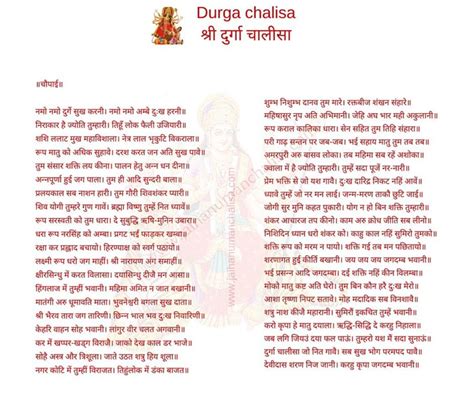 Durga chalisa
श्री दुर्गा चालीसा
॥चौपाई॥
नमो नमो दुर्गे सुख करनी। नमो नमो अम्बे दुःख हरनी॥
निराकार है ज्योति तुम्हारी। तिहूँ लोक फैली उजियारी॥
शशि ललाट मुख महाविशाला। नेत्र लाल भृकुटि विकराला॥
रूप मातु को अधिक सुहावे। दरश करत जन अति सुख पावे॥
तुम संसार शक्ति लय कीना। पालन हेतु अन्न धन दीना॥
अन्नपूर्णा हुई जग पाला। तुम ही आदि सुन्दरी बाला॥
प्रलयकाल सब नाशन हारी। तुम गौरी शिवशंकर प्यारी॥
शिव योगी तुम्हरे गुण गावें। ब्रह्मा विष्णु तुम्हें नित ध्यावें॥
रूप सरस्वती को तुम धारा। दे सुबुद्धि ऋषि-मुनिन उबारा॥
धरा रूप नरसिंह को अम्बा। प्रगट भई फाड़कर खम्बा॥
रक्षा कर प्रह्लाद बचायो। हिरण्याक्ष को स्वर्ग पठायो॥
लक्ष्मी रूप धरो जग माहीं। श्री नारायण अंग समाहीं॥
क्षीरसिन्धु में करत विलासा। दयासिन्धु दीजै मन आसा॥
हिंगलाज में तुम्हीं भवानी। महिमा अमित न जात बखानी॥
मातंगी अरु धूमावति माता। भुवनेश्वरी बगला सुख दाता॥
श्री भैरव तारा जग तारिणी। छिन्न भाल भव दुःख निवारिणी॥
केहरि वाहन सोह भवानी। लांगुर वीर चलत अगवानी॥
कर में खप्पर-खड्ग विराजै। जाको देख काल डर भाजे॥
सोहै अस्त्र और त्रिशूला। जाते उठत शत्रु हिय शूला॥
नगर कोटि में तुम्हीं विराजत। तिहुंलोक में डंका बाजत॥
शुम्भ निशुम्भ दानव तुम मारे। रक्तबीज शंखन संहारे॥
महिषासुर नृप अति अभिमानी। जेहि अघ भार मही अकुलानी॥
रूप कराल कालिका धारा। सेन सहित तुम तिहि संहारा॥
परी गाढ़ सन्तन पर जब-जब। भई सहाय मातु तुम तब तब॥
अमरपुरी अरु बासव लोका। तब महिमा सब रहें अशोका॥
ज्वाला में है ज्योति तुम्हारी। तुम्हें सदा पूजें नर-नारी॥
प्रेम भक्ति से जो यश गावै। दुःख दारिद्र निकट नहिं आवें॥
ध्यावे तुम्हें जो नर मन लाई। जन्म-मरण ताकौ छुटि जाई॥
जोगी सुर मुनि कहत पुकारी। योग न हो बिन शक्ति तुम्हारी॥
शंकर आचारज तप कीनो। काम अरु क्रोध जीति सब लीनो॥
निशिदिन ध्यान धरो शंकर को। काहु काल नहिं सुमिरो तुमको॥
शक्ति रूप को मरम न पायो। शक्ति गई तब मन पछितायो॥
शरणागत हुई कीर्ति बखानी। जय जय जय जगदम्ब भवानी॥
भई प्रसन्न आदि जगदम्बा। दई शक्ति नहिं कीन विलम्बा॥
मोको मातु कष्ट अति घेरो। तुम बिन कौन हरै दुःख मेरो॥
आशा तृष्णा निपट सतावे। मोह मदादिक सब विनशावै॥
शत्रु नाश कीजै महारानी। सुमिरौं इकचित तुम्हें भवानी॥
करो कृपा हे मातु दयाला। ऋद्धि-सिद्धि दे करहु निहाला॥
जब लगि जियउं दया फल पाऊं। तुम्हरो यश मैं सदा सुनाऊं॥
दुर्गा चालीसा जो नित गावै। सब सुख भोग परमपद पावै॥
देवीदास शरण निज जानी। करहु कृपा जगदम्ब भवानी॥